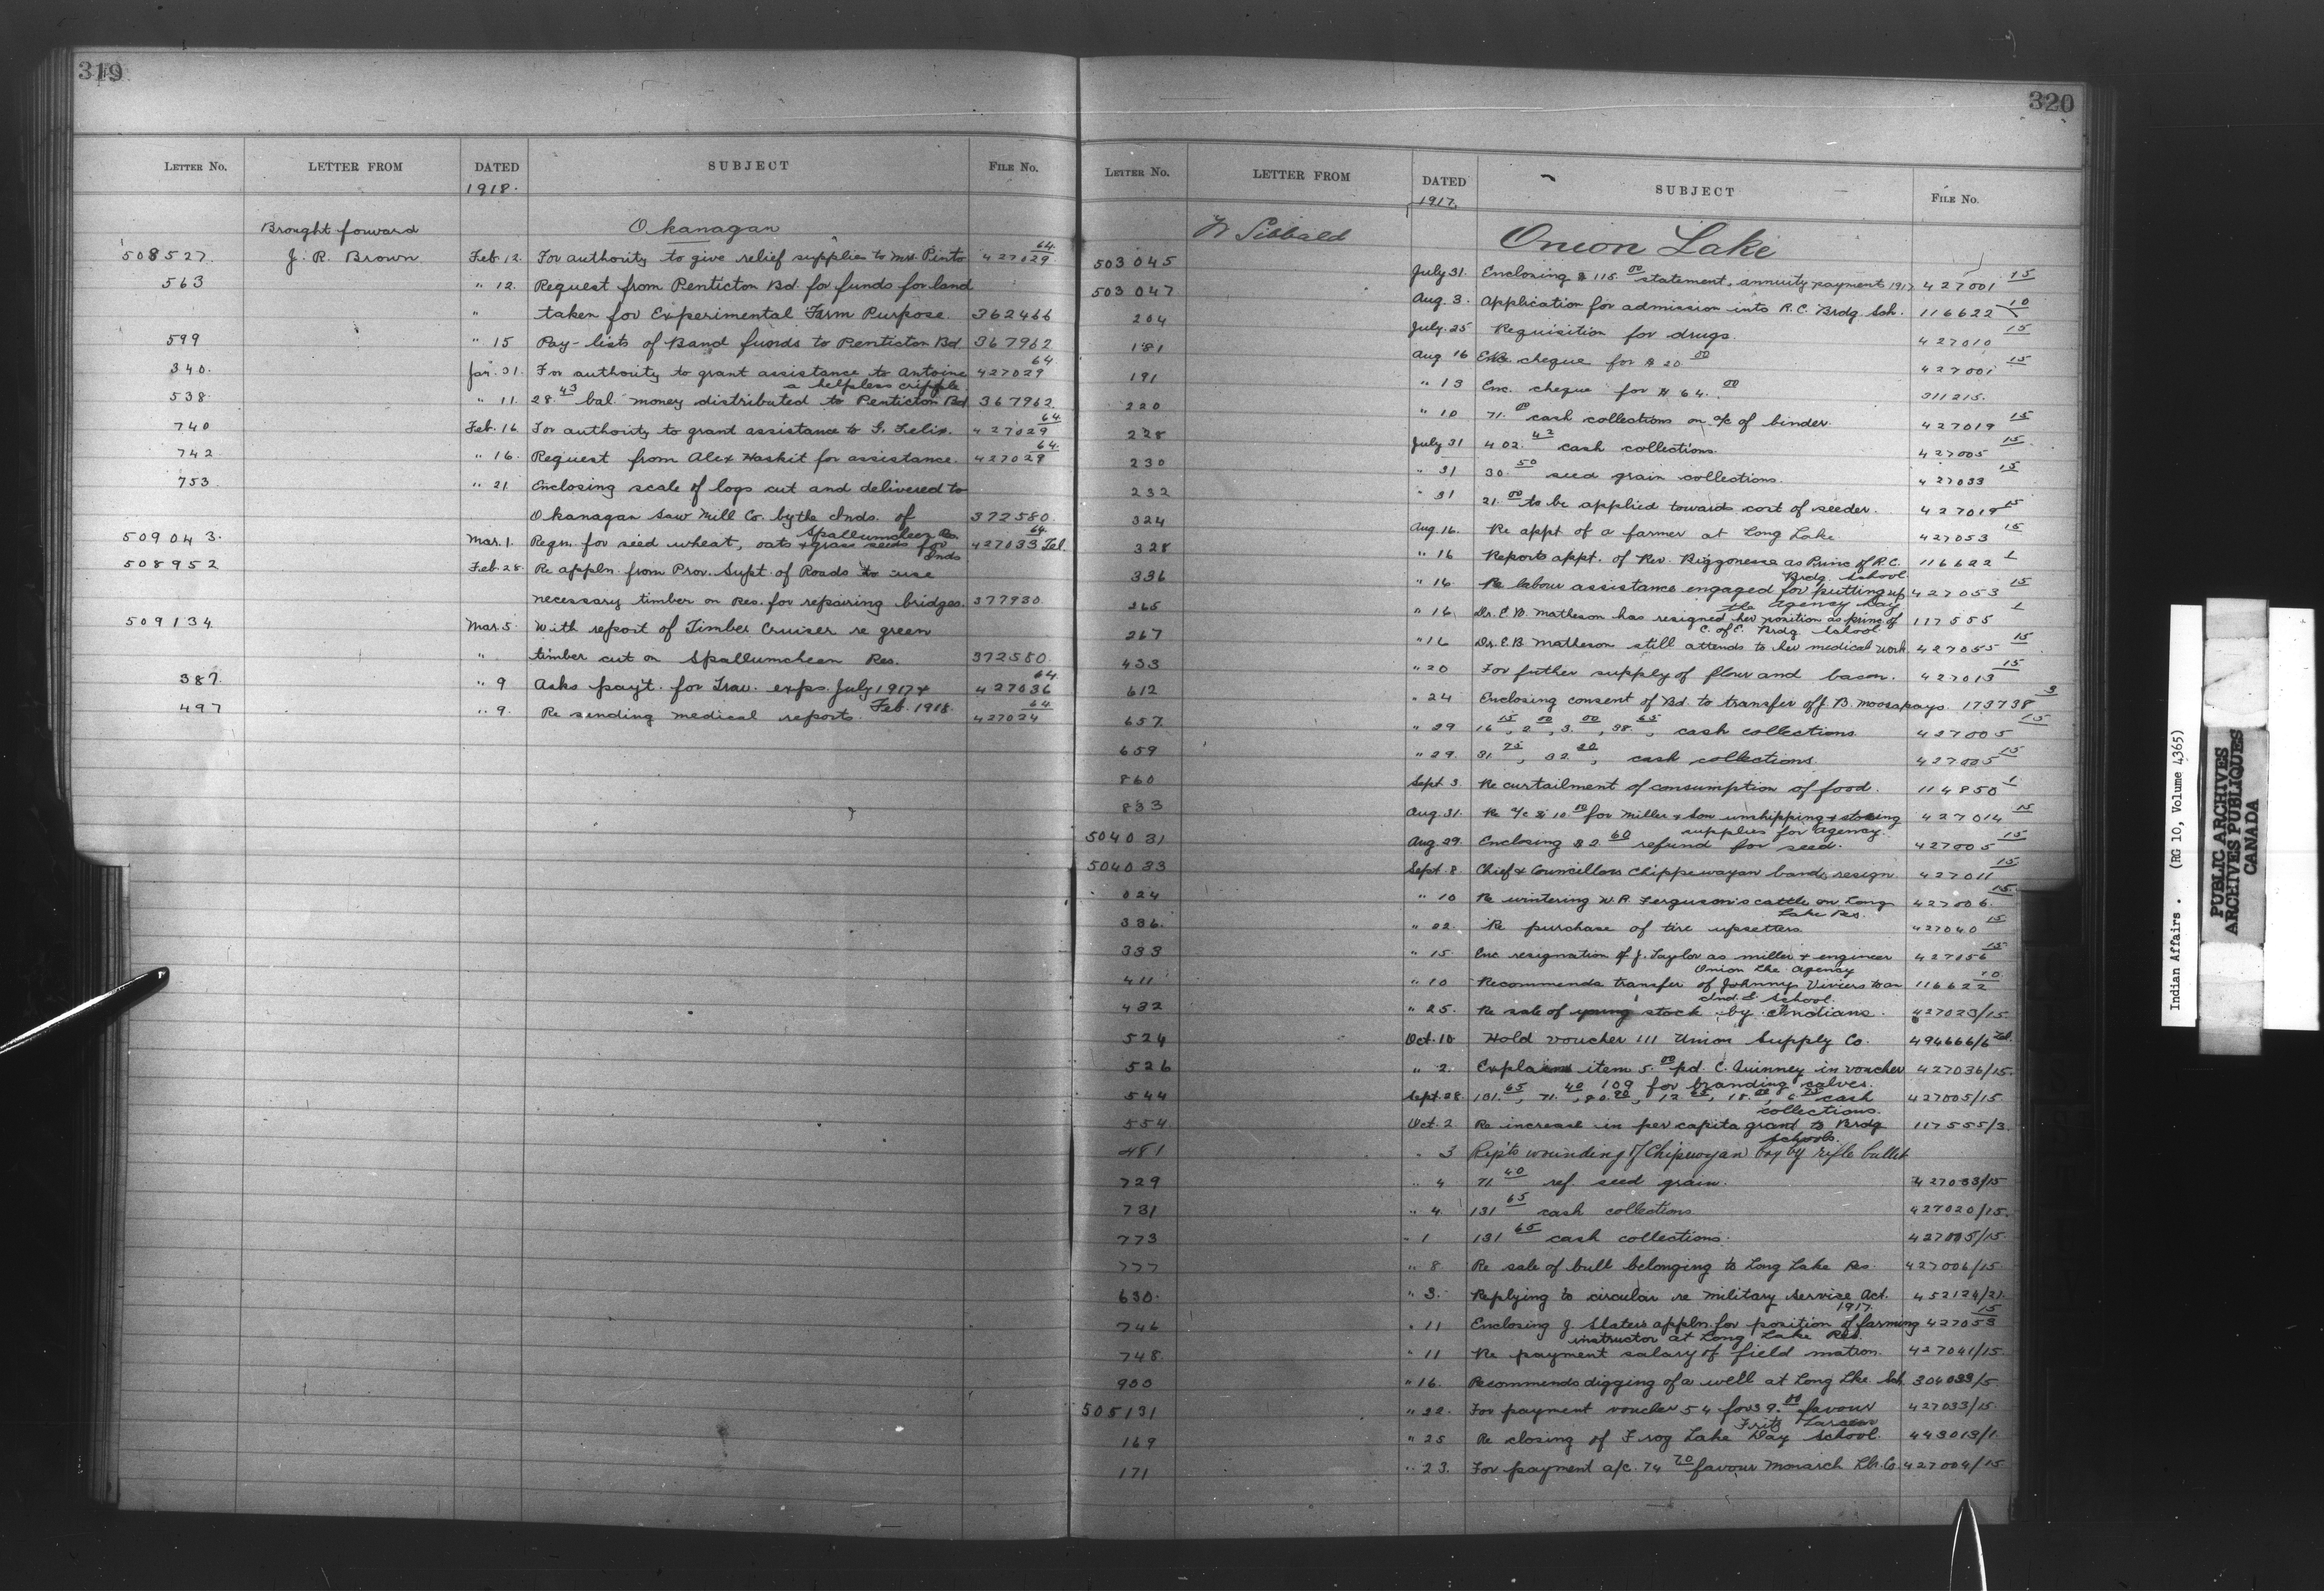 319
LETTER No. LETTER FROM DATED SUBJECT FILE No.
1918.
Brought forward Okanagan
508527 J. R. Brown Feb. 12. For authority to give relief supplies to Mrs. Pinto 427029 64
563 " 12. Request from Penticton Bd. for funds for land
" taken for Experimental Farm Purpose. 362466
599 " 15 Pay-lists of Band funds to Penticton Bd. 367962
340. Jan. 31. For authority to grant assistance to Antoine 427029 64
a helpless cripple.
538 " 11. 28.43 bal. money distributed to Penticton Bd. 367962.
740 Feb. 16 For authority to grant assistance to G. Felix. 427029 64
742 " 16. Request from Alex Haskit for assistance. 427029 64
753 " 21 Enclosing scale of logs cut and delivered to
Okanagan Saw Mill Co. by the Inds. of 372580.
Spallumcheen Res.
509043. Mar. 1. Reqn. for seed wheat, oats & grass seeds for 427033 64 Tel.
Inds
508952 Feb. 28. Re appln. from Prov. Supt. of Roads to use
necessary timber on Res. for repairing bridges. 377930.
509134 Mar. 5. With report of Timber Cruiser re green
" timber cut on Spallumcheen Res. 372580.
387. " 9 Asks pay't. for Trav. exps. July 1917 & 427036 64
Feb. 1918.
497 " 9. Re sending medical reports. 427024 64
320
LETTER No. LETTER FROM DATED SUBJECT FILE No.
1917.
W Sibbald Onion Lake
503045 July 31. Enclosing $115.00 statement, annuity payment 1917 427001 15
503047 Aug. 3. Application for admission into R.C. Brdg. Sch. 116622 10
204 July. 25 Requisition for drugs. 427010 15
181 Aug 16 Enc cheque for $20.00 427001 15
191 " 13 Enc. cheque for $64.00 311215.
220 " 10 71. cash collections on a/c of binder. 427019 15
228 July 31 402.42 cash collections. 427005 15
230 " 31 30.50 seed grain collections. 427033 15
232 " 31 21.00 to be applied towards cost of seeder. 427019 15
324 Aug. 16. Re appt. of a farmer at Long Lake 427053 15
328 " 16 Reports appt. of Rev. Biggonesse as Princ of R.C. 116622 1
Brdg. School.
336 " 16. Re labour assistance engaged for putting up 427053 15
the agency hay
265 " 16 Dr. E.B. Matheson has resigned her position as princ. of 117555 1
C. of E. Brdg. School
267 " 16 Dr. E.B. Matheson still attends to her medical work. 427055 15
433 " 20 For futher supply of flour and bacon. 427013 15
612 " 24 Enclosing consent of Bd. to transfer of J. B. Moosapays. 173738 3
657. " 29 16.15, 2.00, 3.00, 38.65, cash collections 427005 15
659 " 29. 31.25, 32.20, cash collections. 427005 15
860 Sept. 3 Re curtailment of consumption of food. 114850 1
833 Aug. 31. Re a/c $10.00 for Miller & Son unshipping & storing 427014 15
supplies for agency.
504031 Aug. 29. Enclosing $2.60 refund for seed. 427005 15
504033 Sept. 8 Chief & Councillors Chippewayan band, resign. 427011 15
024 " 10 Re wintering W.R. Ferguson's cattle on Long 427006. 15
Lake Res.
336. " 22. Re purchase of tire upsetters 427040 15
333 " 15. Enc resignation of J. Taylor as miller & engineer 427056 15
Onion Lke. Agency
411 " 10 Recommends transfer of Johnny Viviers to an 116622 10
Ind. S. School.
432 " 25. Re sale of young stock by Indians. 427023/15
524 Oct. 10 Hold voucher 111 Union Supply Co. 494666/6 Tel.
526 " 2. Explains item 5.00 pd. C. Quinney in voucher 427036/15.
109 for branding calves.
544 Sept. 28 131.65, 71.40, cash 427005/15
collections.
554. Oct. 2 Re increase in per capita grant to Brdg. 117555/3.
schools.
481 " 3 Rep'ts wounding of Chipwoyan boy by rifle bullet
729 " 4 71.40 ref. seed grain. 427033/15
731 " 4. 131.65 cash collections 427020/15.
773 " 1 131.65 cash collections. 427005/15
777 " 8 Re sale of bull belonging to Long Lake Res. 427006/15
630. " 3. Replying to circular re Military Service Act. 452124/21.
1917.
746 " 11 Enclosing J. Slater's appln. for position of farming 427053 15
instructor at Long Lake Res.
748. " 11 Re payment salary of field matron. 427041/15
900 " 16. Recommends digging of a well at Long Lke. Sch. 304033/5
505131 " 22. For payment voucher 54 for 39.00 favour 427033/15.
Fritz Larsen
169 " 25 Re closing of Frog Lake Day School. 443013/1.
171 " 23. For payment a/c. 74.70 favour Monarch Lbr. Co 427004/15
Indian Affairs. (RG 10, Volume 4365)
PUBLIC ARCHIVES
ARCHIVES PUBLIQUES
CANADA